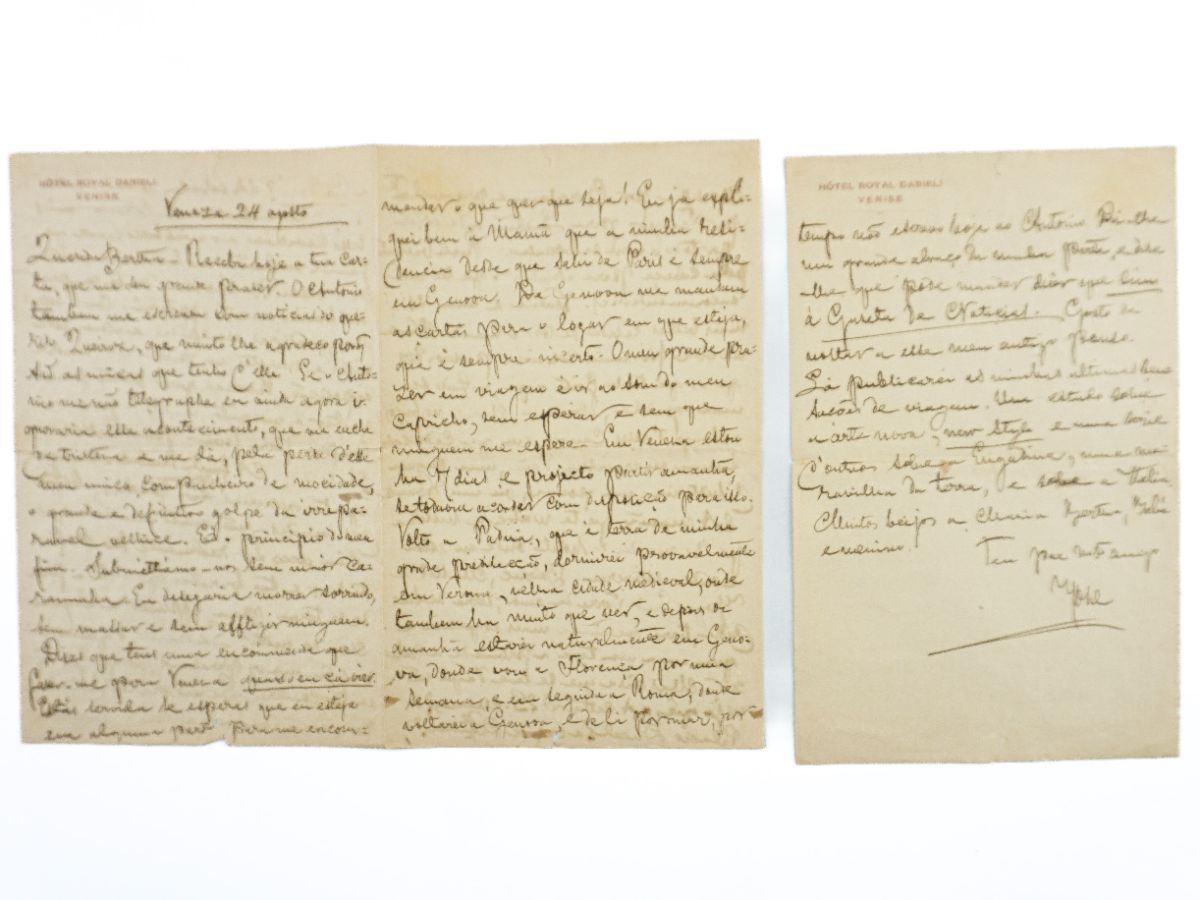 HÔTEL ROYAL DANIELI
VENISE
Veneza 24 agosto
Querida Bertha – Recebi hoje a tua car-
ta, que me deu grande prazer. O Antonio
tambem me escreveu com noticias do que-
rido Queiroz, que muito lhe agradeço porq
são as unicas que tenho d'elle. Se o Anto-
nio me não telegrapha eu ainda agora i-
gnoraria esse acontecimento, que me enche
de tristeza e me dá, pela perda d'esse
meu unico companheiro de mocidade,
o grande e definitivo golpe da irrepa-
ravel velhice. É o principio do meu
fim. Submettamo-nos sem maior ca-
ramunha. Eu desejaria morrer sorrindo,
sem massar e sem affligir ninguem.
Dizes que tens uma encommenda que
fazer-me para Veneza quando eu cá vier.
Estás servida se esperas que eu esteja
em alguma parte para me encom-
mendar o que quer que seja! Eu já expli-
quei bem á Mamã que a minha resi-
dencia desde que sahi de Paris é sempre
em Genova. De Genova me mandam
as cartas para o logar em que esteja,
que é sempre incerto. O meu grande pra-
zer em viagem é ir ao som do meu
capricho, sem esperar e sem que
ninguem me espere. Em Veneza estou
ha 7 dias, e projecto partir amanhã,
se todavia acordar com disposição para isso.
Volto a Padua, que é terra de minha
grande predilecção, dormirei provavelmente
em Verona, velha cidade medieval, onde
tambem ha muito que ver, e depois de
amanhã estarei naturalmente em Geno-
va, donde vou a Florença por uma
semana, e em seguida a Roma, donde
voltarei a Genova, e de lá por mar, por
HÔTEL ROYAL DANIELI
VENISE
tempo não escrevo hoje ao Antonio. Dá-lhe
um grande abraço da minha parte, e dize
lhe que póde mandar dizer que sim
á Gazeta de Noticias. Gosto de
voltar a esse meu antigo pouso.
Lá publicarei as minhas ultimas
de viagem. Um estudo sobre
a arte nova, new style e uma serie
d'outros sobre a Engadina, uma ma-
ravilha da terra, e sobre a Italia.
Muitos beijos a Maria Bertha,
e menino.
Teu pae muito amigo